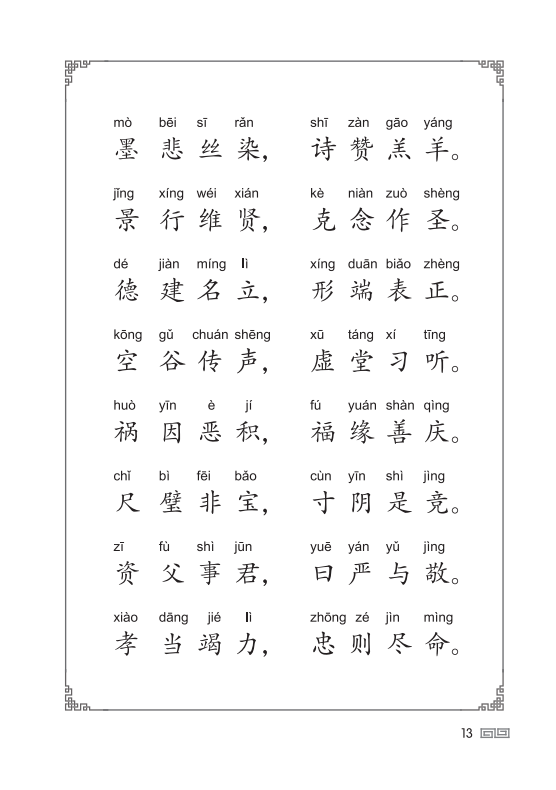 mò bēi sī rǎn shī zàn gāo yáng
墨悲丝染，诗赞羔羊。
jǐng xíng wéi xián kè niàn zuò shèng
景行维贤，克念作圣。
dé jiàn míng lì xíng duān biǎo zhèng
德建名立，形端表正。
kōng gǔ chuán shēng xū táng xí tīng
空谷传声，虚堂习听。
huò yīn è jí fú yuán shàn qìng
祸因恶积，福缘善庆。
chǐ bì fēi bǎo cùn yīn shì jìng
尺璧非宝，寸阴是竞。
zī fù shì jūn yuē yán yǔ jìng
资父事君，曰严与敬。
xiào dāng jié lì zhōng zé jìn mìng
孝当竭力，忠则尽命。
13